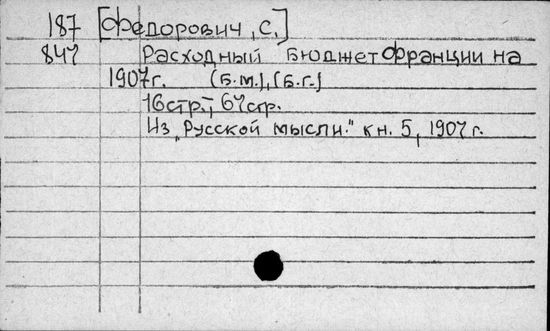 187 [Федорович, С.]
847 Расходный бюджет Франции на
1907г. (б.м.), (б.г.)
16стр., 67стр.
Из „Русской мысли." кн. 5, 1907г.